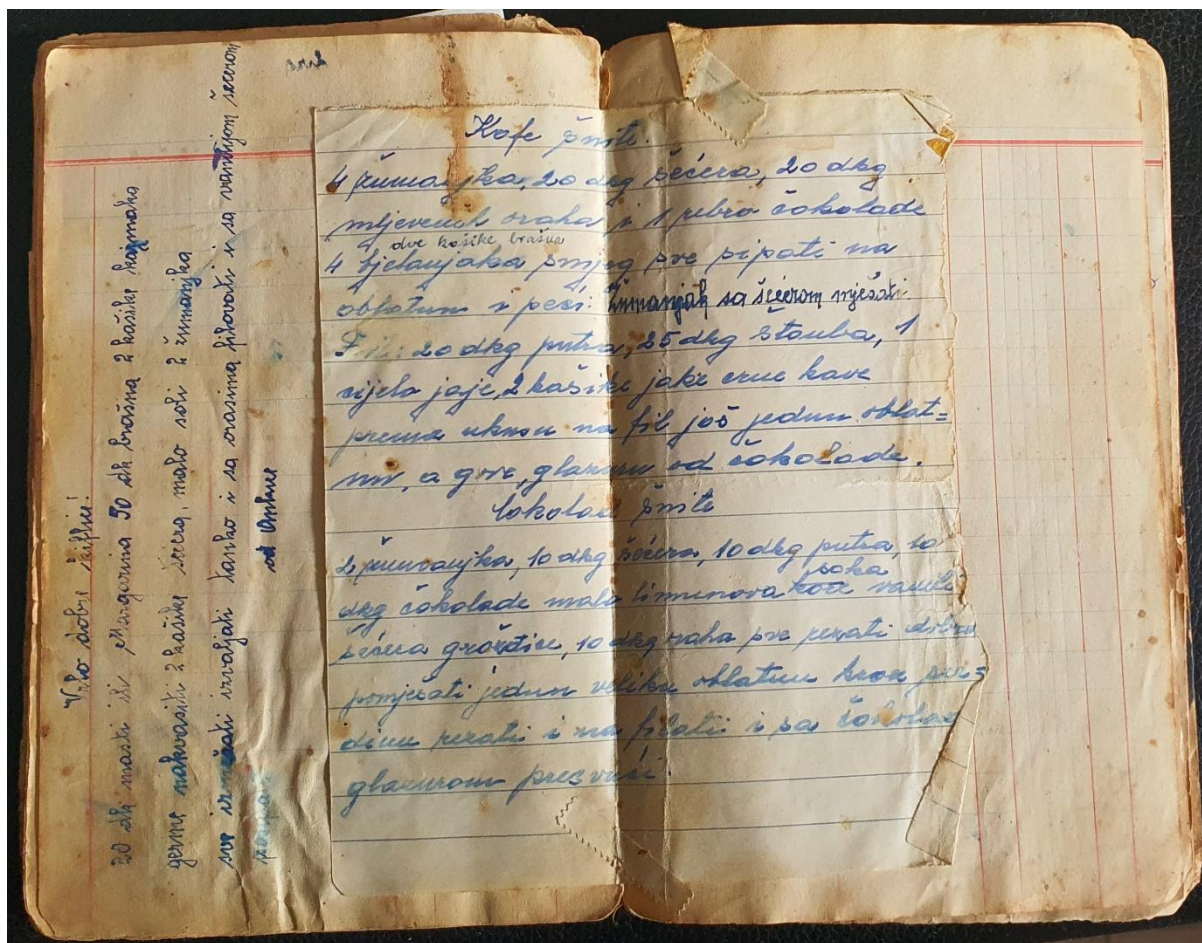 Vrlo dobre kiflice!
20 dk masti ili Margarina 50 dk brašna 2 kašike kajmaka
germe nakvasiti 2 kašike šećera, malo soli 2 žumanjka
sve izmešati izvaljati tanko i sa orasima filovati i sa vanilijom šećerom
od Ankice
Kafe šnite.
4 žumanjka, 20 dkg šećera, 20 dkg
mljevenih oraha i 1 rebro čokolade
dve kašike brašna
4 bjelanjaka snijeg sve sipati na
oblatnu i peći. Žumanjak sa šećerom mješati.
Fil: 20 dkg putra, 25 dkg štauba, 1
cijelo jaje, 2 kašike jake crne kave
prema ukusu na fil još jednu oblat=
nu, a gore, glazuru od čokolade.
Čokolad šnite
2 žumanjka, 10 dkg šećera, 10 dkg putra, 10
soka
dkg čokolade malo limunova vanili
šećera grožđice, 10 dkg oraha sve rezati dobro
pomješati jednu veliku oblatnu kroz sre=
dinu rezati i na filati i sa čokolad
glazurom presvući.